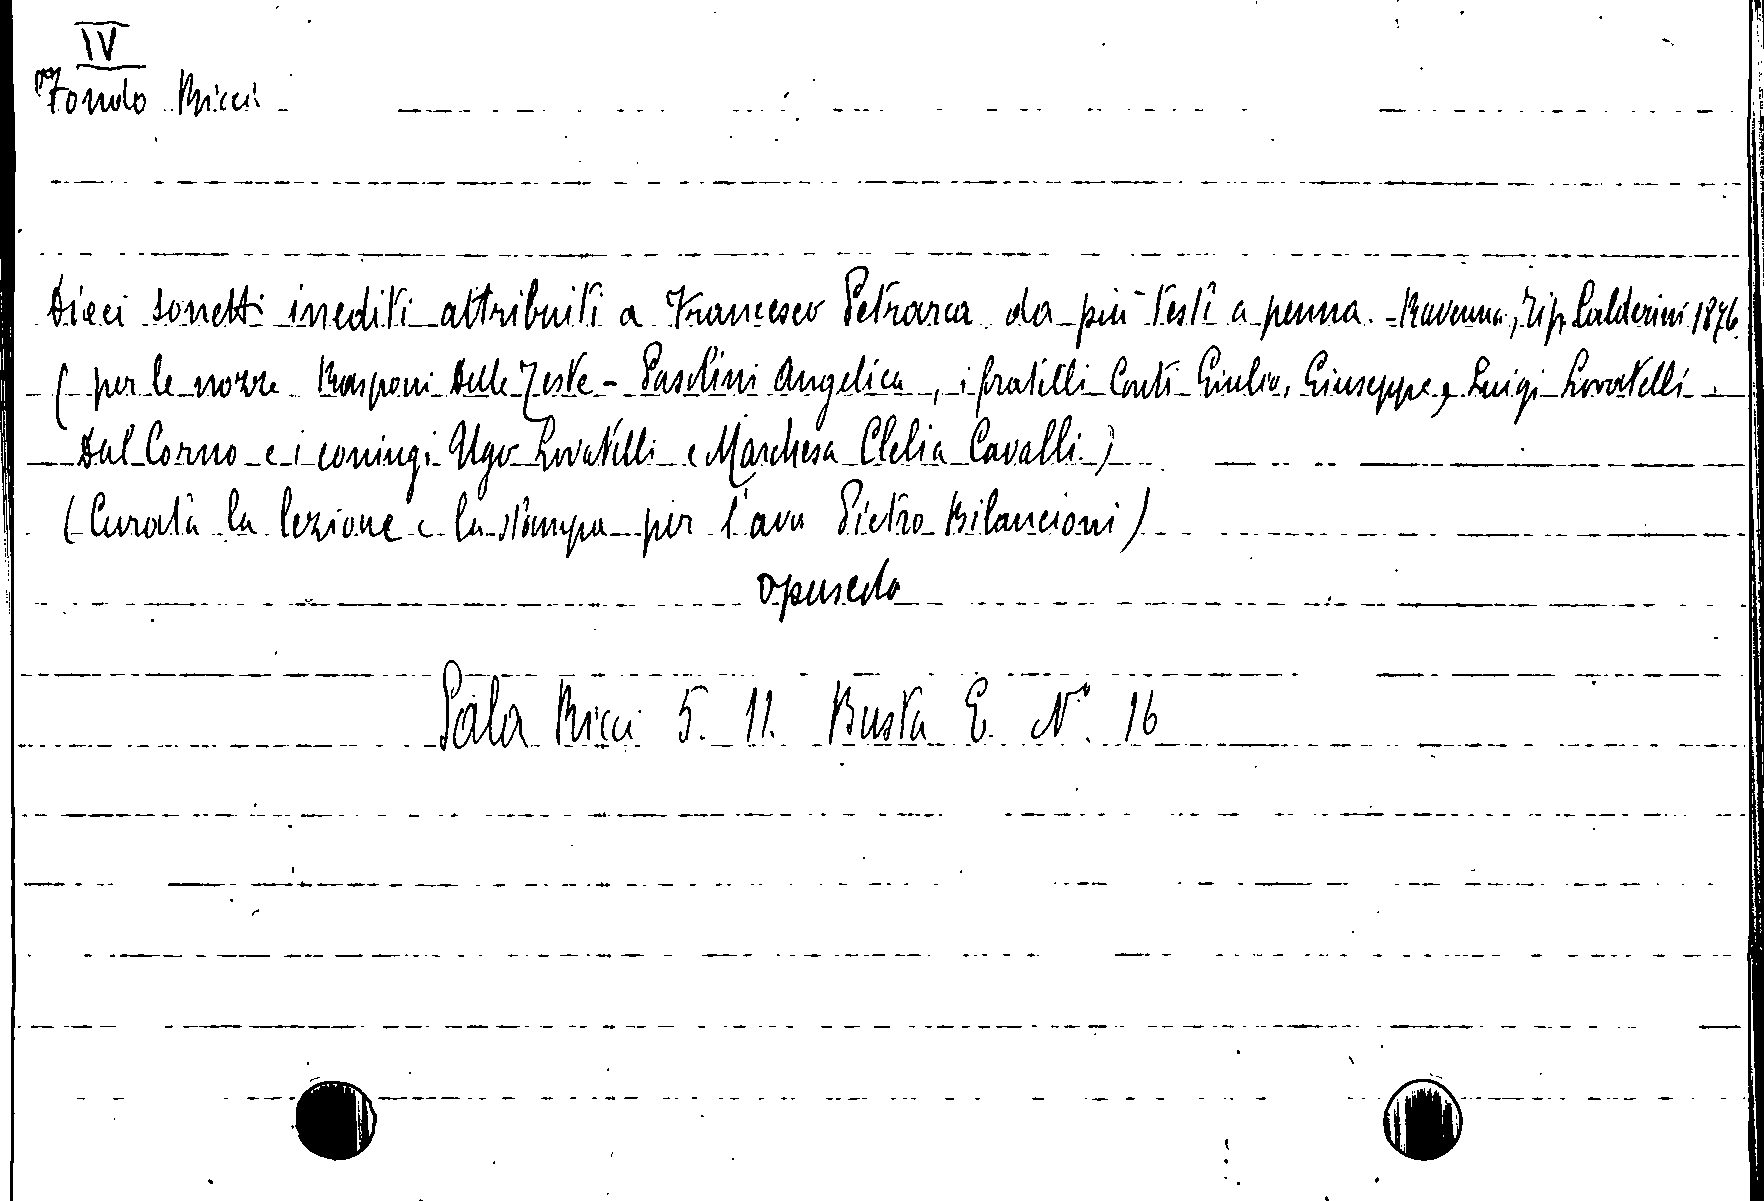 IV
Fondo Ricci
Dieci sonetti inediti attribuiti a Francesco Petrarca da più testi a penna. - Ravenna, Tip. Calderini 1876.
( per le nozze Rasponi Delle Teste - Pasolini Angelica, i fratelli Conti Giulio, Giuseppe, Luigi Lovatelli
Dal Corno e i coniugi Ugo Lovatelli e Marchesa Clelia Cavalli.)
( Curata la lezione e la stampa per l'avv Pietro Bilancioni )
opuscolo
Sala Ricci 5. 11. Busta E. N°. 16